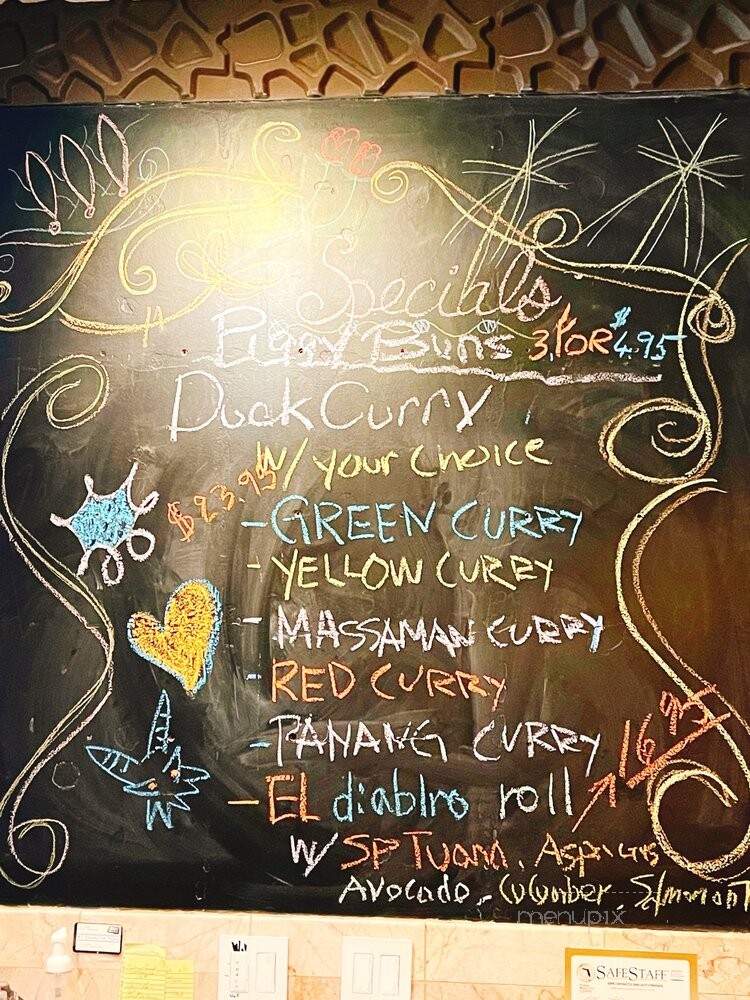 Specials
Piggy Buns 3 FOR $4.95
Duck Curry
W/ your choice
$23.95
- GREEN CURRY
- YELLOW CURRY
- MASSAMAN CURRY
- RED CURRY
- PANANG CURRY
- EL diablro roll 16.95
W/ SP Tuana, Aspargus
Avocado, CuCumber,
menupix
SAFESTAFF